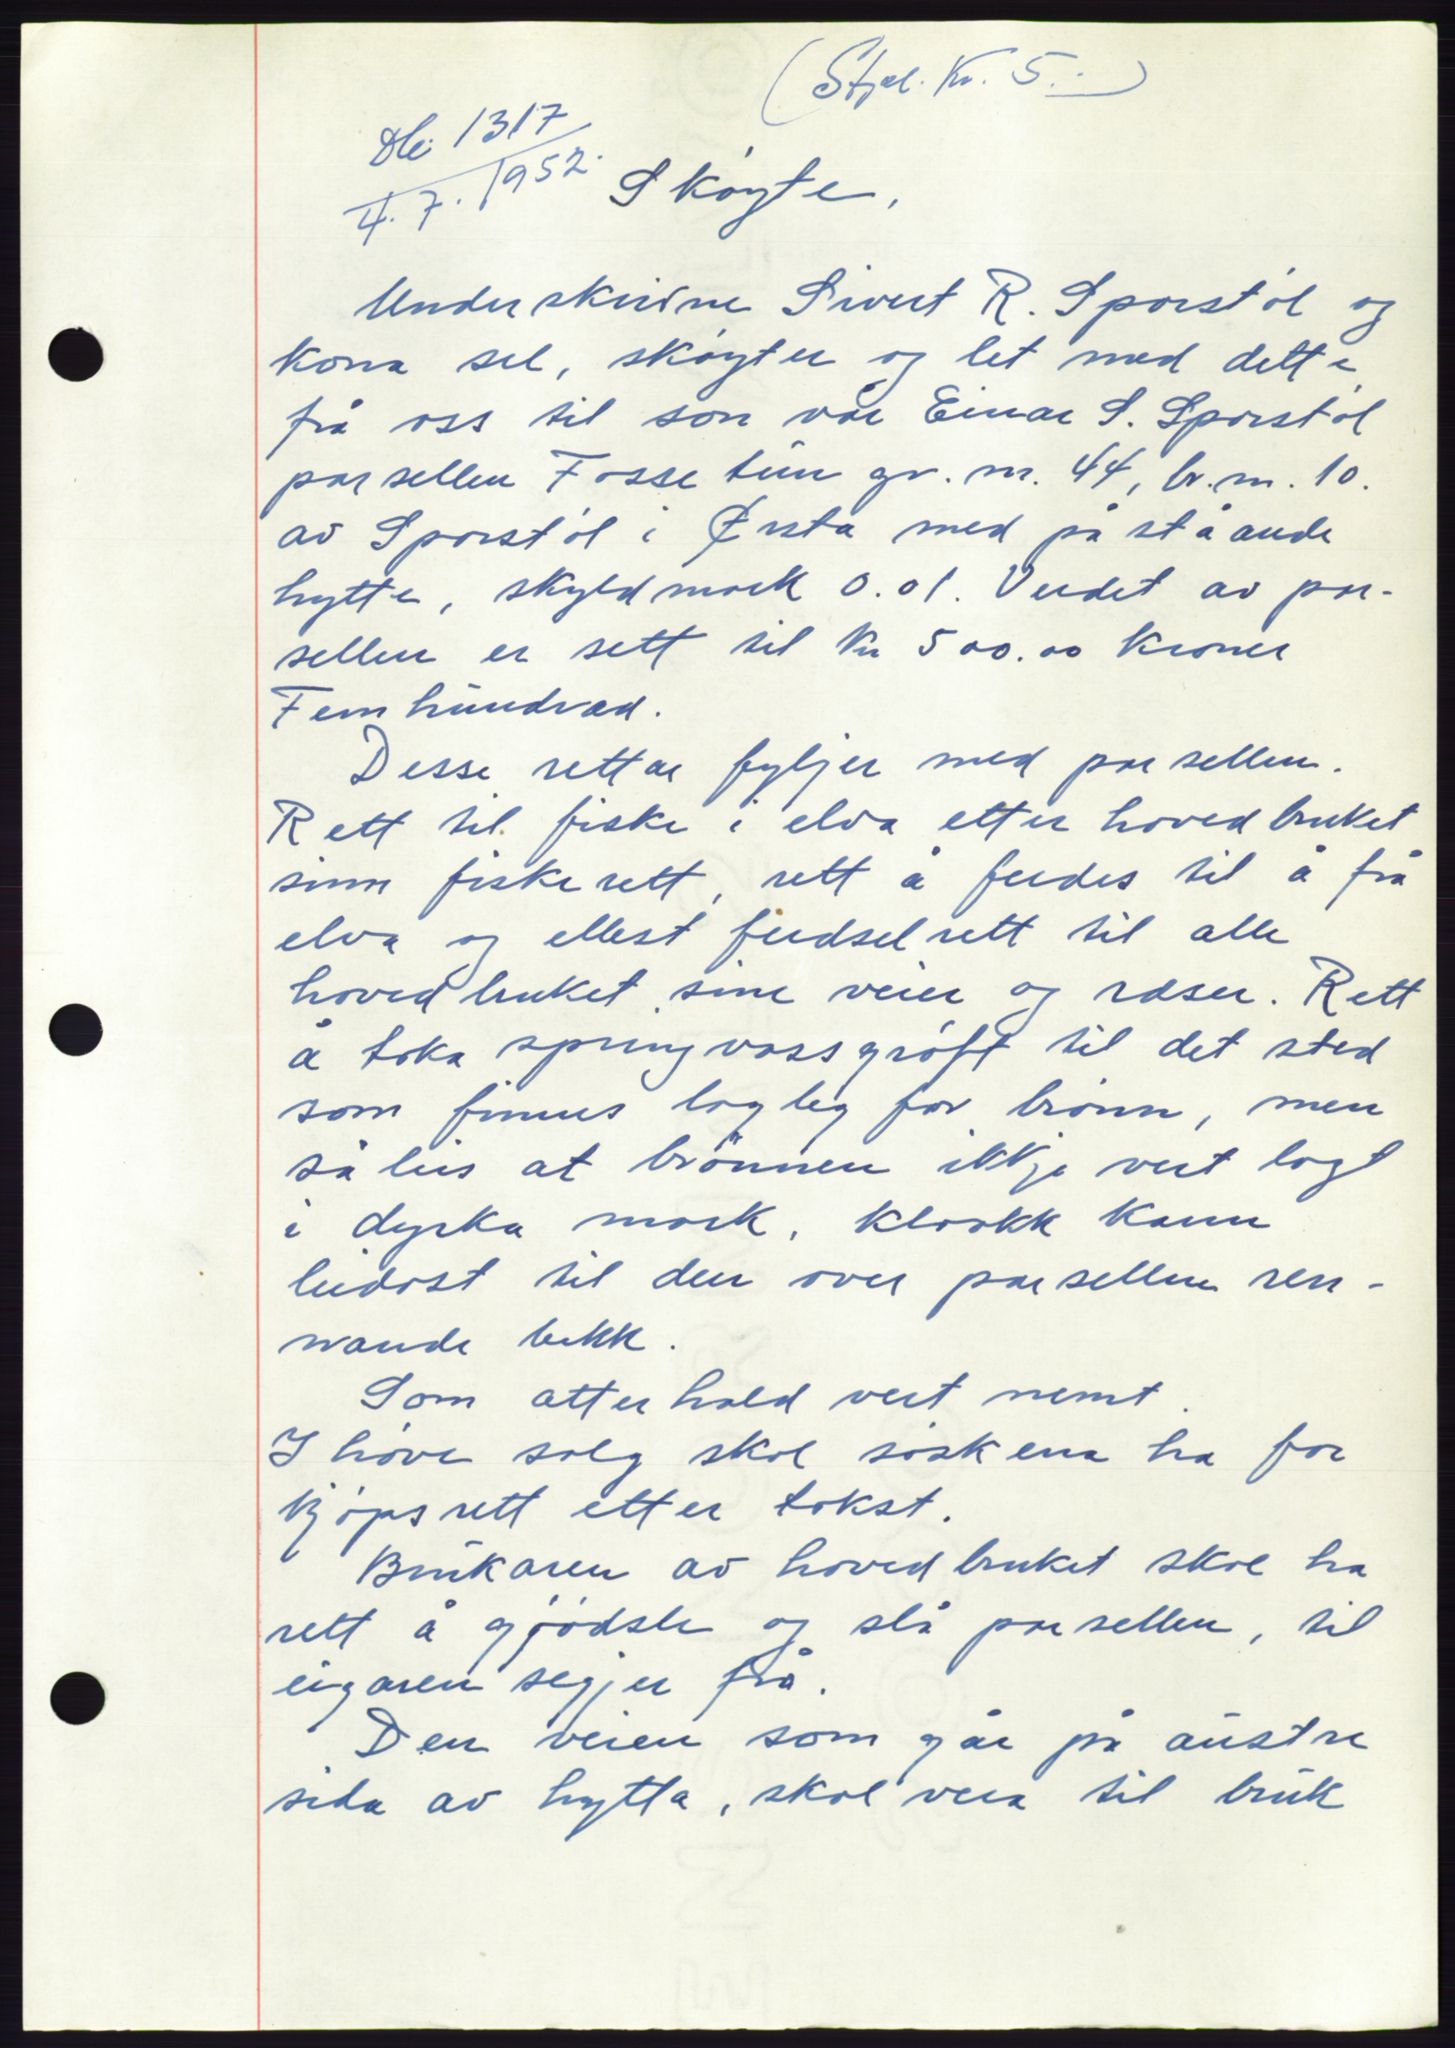 (Stpl. Kr. 5.-)
Db. 1317
4. 7. 1952.
Skøyte.
Underskrivne Sivert R. Sporstøl og
kona sel, skøyter og let med dette
frå oss til son vår Einar S. Sporstøl
parsellen Fossetun gr. nr. 44, br. nr. 10.
av Sporstøl i Ørsta med påståande
hytte, skyldmark 0.01. Verdet av par-
sellen er sett til Kr 500.00 Kroner
Femhundrad.
Desse rettar fyljer med parsellen.
Rett til fiske i elva etter hovedbruket
sinn fiskerett, rett å ferdes til å frå
elva og ellest ferdselrett til alle
hovedbruket sine veier og ræser. Rett
å taka springvassgrøft til det sted
som finnes lagleg for brønn, men
såleis at brønnen ikkje vert lagt
i dyrka mark. Kloakk kann
leidast til den over parsellen ren-
nande bekk.
Som atterhald vert nemt.
I høve salg skal søskena ha for
kjøpsrett etter takst.
Brukaren av hovedbruket skal ha
rett å gjødsle og slå parsellen, til
eigaren segjer frå.
Den veien som går på austre
sida av hytta, skal vera til bruk